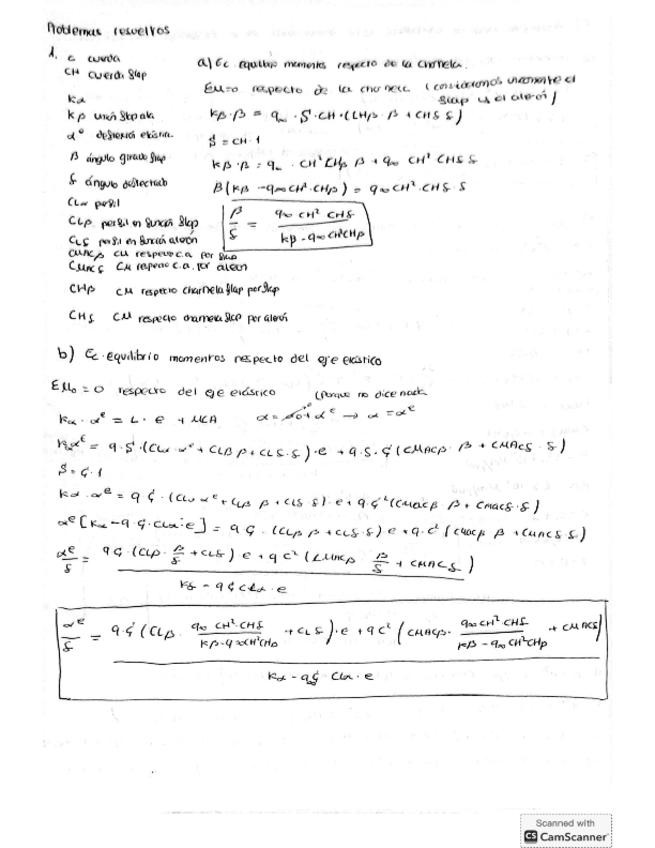 Problemas resueltos
1. c cuerda
CH cuerda flap
kα
kβ unión flap ala
αᵉ deflexión elástica
β ángulo girado flap
δ ángulo deflectado
CLα perfil
CLβ perfil en función flap
CLδ perfil en función alerón
CMACβ CM respecto c.a. por flap
CMACδ CM respecto c.a. por alerón
CHβ CM respecto charnela flap por flap
CHδ CM respecto charnela flap por alerón
a) Ec equilibrio momentos respecto de la charnela.
ΣM=0 respecto de la charnela (consideramos únicamente el
flap y el alerón)
kβ·β = q∞ · S · CH · (CHβ · β + CHδ δ)
S = CH · 1
kβ·β = q∞ · CH² CHβ β + q∞ CH² CHδ δ
β(kβ - q∞ CH² · CHβ) = q∞ CH² · CHδ · δ
β/δ = q∞ CH² CHδ / (kβ - q∞ CH² CHβ)
b) Ec. equilibrio momentos respecto del eje elástico
ΣM₀ = 0 respecto del eje elástico (porque no dice nada
kα · αᵉ = L · e + MCA α = α₀ + αᵉ → α = αᵉ
kα αᵉ = q · S · (CLα · αᵉ + CLβ β + CLδ · δ) · e + q · S · c (CMACβ · β + CMACδ · δ)
S = c · 1
kα · αᵉ = q c · (CLα αᵉ + CLβ β + CLδ δ) · e + q · c² (CMACβ β + CMACδ · δ)
αᵉ [kα - q · c · CLα · e] = q c · (CLβ β + CLδ · δ) e + q · c² (CMACβ β + CMACδ δ)
αᵉ/δ = [q c · (CLβ · β/δ + CLδ) e + q c² (CMACβ β/δ + CMACδ)] / (kα - q c CLα · e)
αᵉ/δ = [q · c (CLβ · q∞ CH² · CHδ / (kβ - q∞ CH² CHβ) + CLδ) · e + q c² (CMACβ · q∞ CH² · CHδ / (kβ - q∞ CH² CHβ) + CMACδ)] / (kα - q c · CLα · e)
Scanned with
CS CamScanner